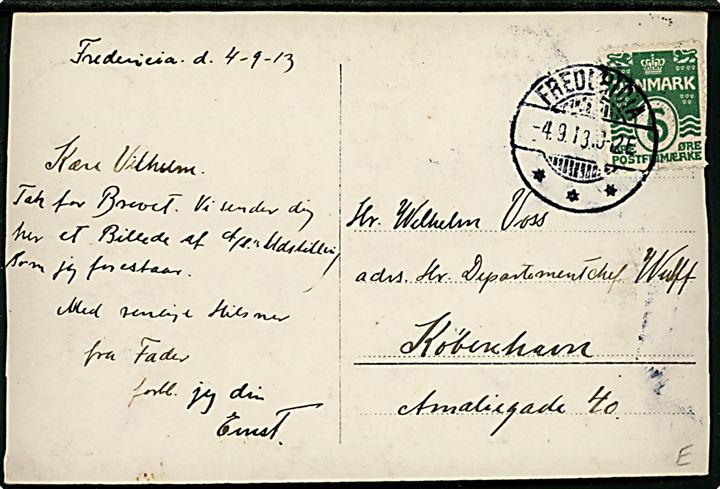 Fredericia. d. 4-9-13
Kære Vilhelm.
Tak for Brevet. Vi sender dig
her et Billede af Udstilling
som jeg forestaar.
Med venlige Hilsner
fra Fader
forbl. jeg din
Ernst.
Hr. Wilhelm Voss
adrs. Hr. Departementchef Wulff
København
Amaliegade 40.
FREDERICIA
-4.9.13.
DANMARK
5
ØRE ØRE
POSTFRIMÆRKE
E